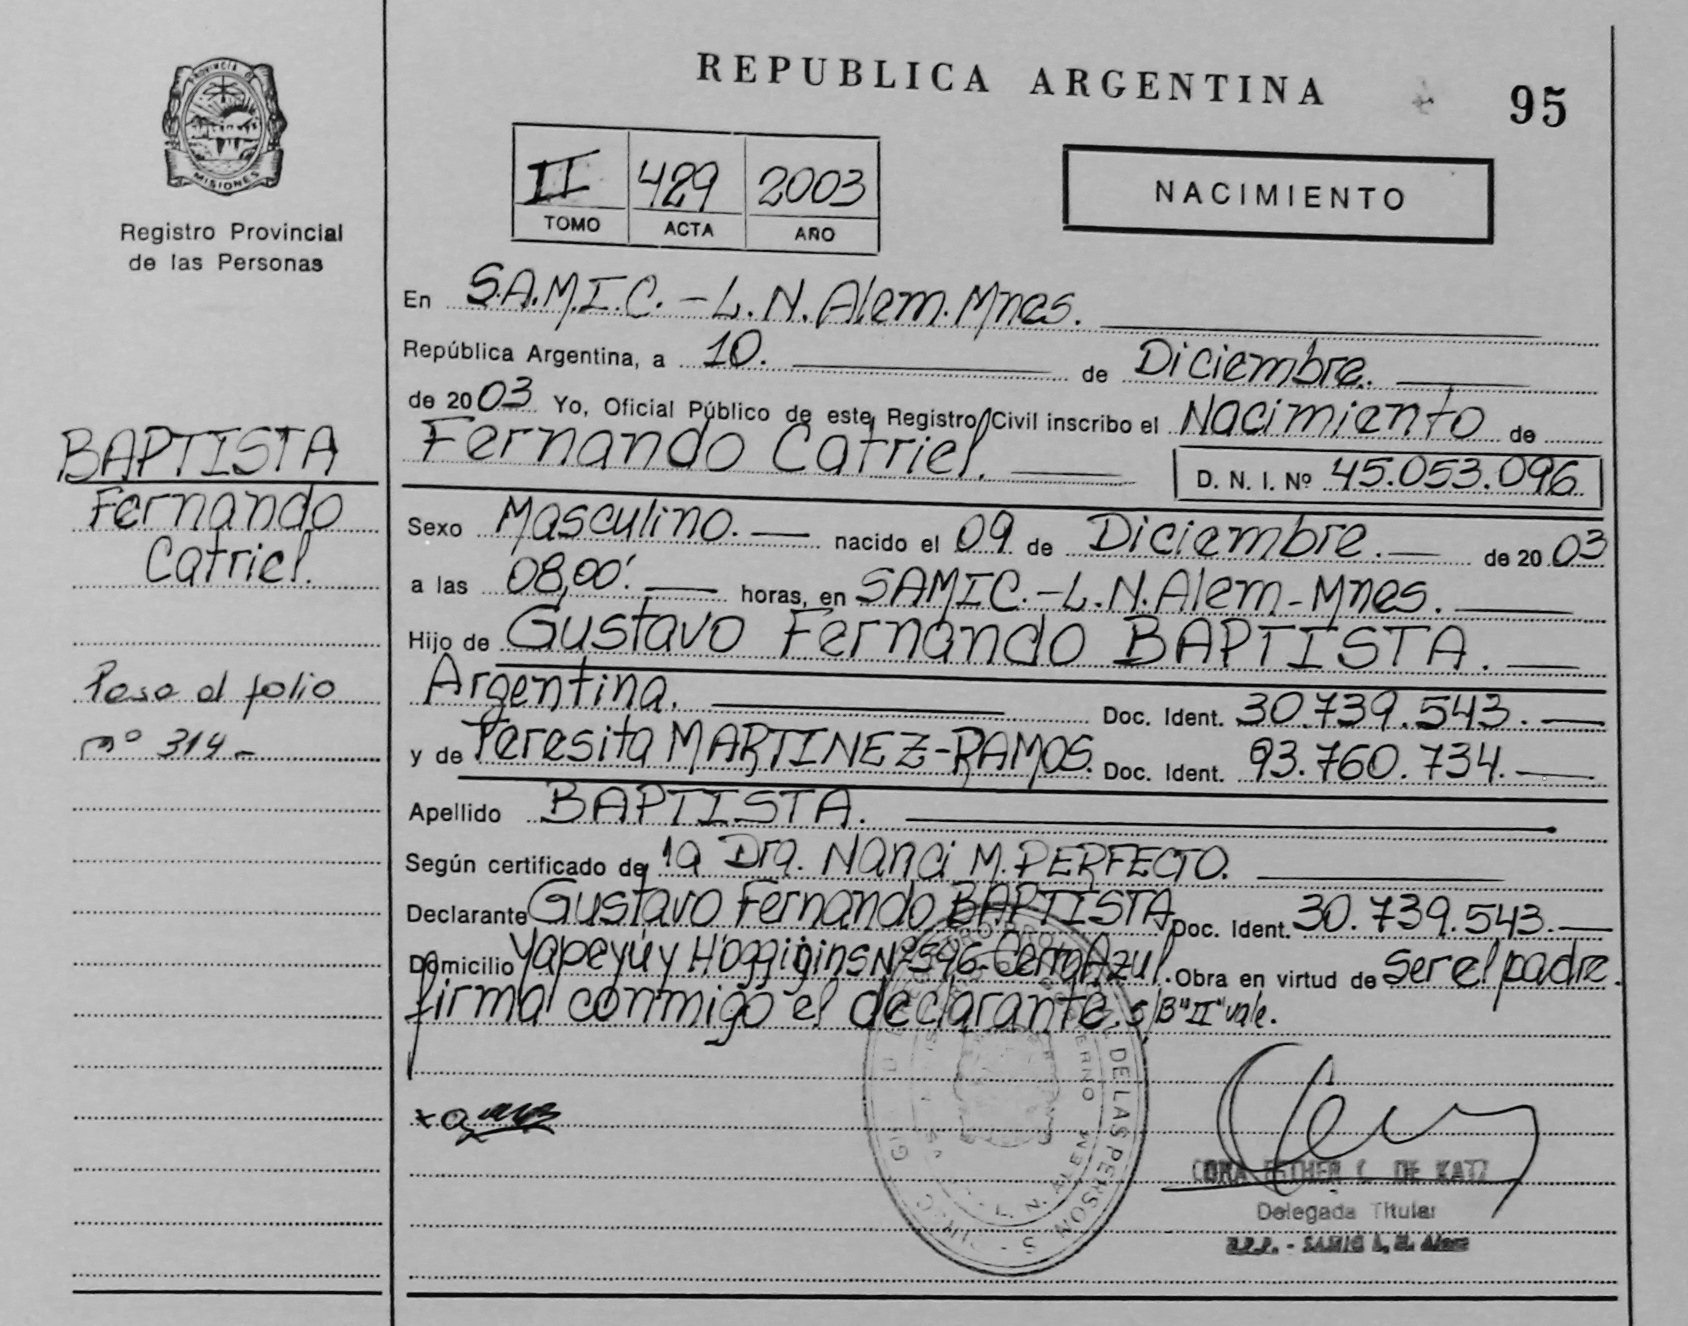 PROVINCIA DE
MISIONES
Registro Provincial
de las Personas
BAPTISTA
Fernando
Catriel.
Pasa al folio
nº 314.-
REPUBLICA ARGENTINA 95
II 429 2003
TOMO ACTA AÑO
NACIMIENTO
En S.A.M.I.C. - L. N. Alem. Mnes.
República Argentina, a 10. de Diciembre.
de 2003 Yo, Oficial Público de este Registro Civil inscribo el Nacimiento de
Fernando Catriel. D. N. I. Nº 45.053.096.
Sexo Masculino. nacido el 09 de Diciembre. de 2003
a las 08,00'. horas, en SAMIC. - L. N. Alem - Mnes.
Hijo de Gustavo Fernando BAPTISTA.
Argentina. Doc. Ident. 30.739.543.
y de Teresita MARTINEZ-RAMOS. Doc. Ident. 93.760.734.
Apellido BAPTISTA.
Según certificado de la Dra. Nanci M. PERFECTO.
Declarante Gustavo Fernando BAPTISTA Doc. Ident. 30.739.543.
Domicilio Yapeyú y Hoggigins Nº 596 - Cerro Azul. Obra en virtud de Ser el padre.
firma conmigo el declarante. S/B "II" vale.
DE LAS PERSONAS
L. N. ALEM
CORA ESTHER C. DE KATZ
Delegada Titular
R.P.P. - SAMIC L. N. Alem